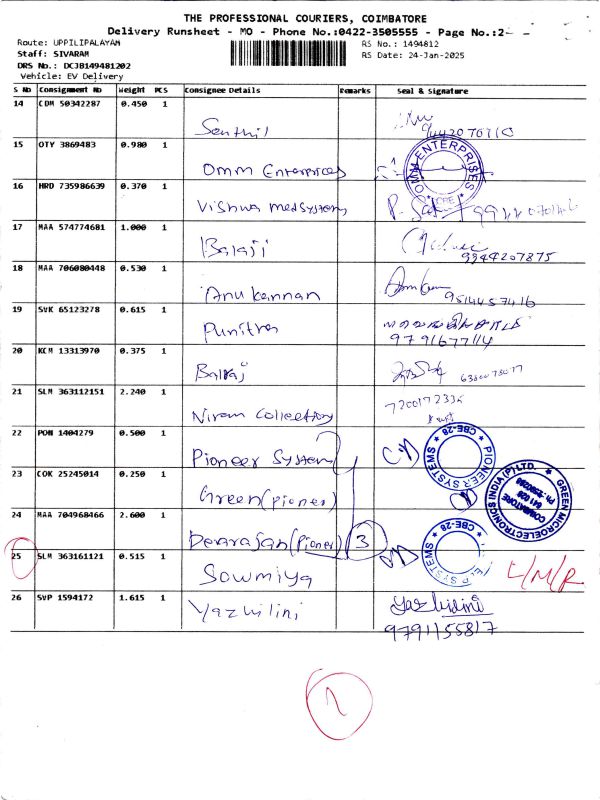 THE PROFESSIONAL COURIERS, COIMBATORE
Delivery Runsheet - MO - Phone No.:0422-3505555 - Page No.:2
Route: UPPILIPALAYAM
RS No.: 1494812
Staff: SIVARAM
RS Date: 24-Jan-2025
DRS No.: DCJB149481202
Vehicle: EV Delivery
S No Consignment No Weight PCS Consignee Details Remarks Seal & Signature
14 CDM 50342287 0.450 1 Senthil
15 OTY 3869483 0.980 1 Omm Enterprices
OMM ENTERPRISES
CBE
16 HRD 735986639 0.370 1 Vishwa medsystem
17 MAA 574774681 1.000 1 Balaji
9944207875
18 MAA 706080448 0.530 1 Anu kannan
9514457416
19 SVK 65123278 0.615 1 Punitha
9791677114
20 KCM 13313970 0.375 1 Balraj
21 SLM 363112151 2.240 1 Niram Collections
7200172335
22 PON 1404279 0.500 1 Pioneer System
PIONEER SYSTEMS
CBE-28
23 COK 25245014 0.250 1 Green (pioner)
GREEN MICROELECTRONICS INDIA (P) LTD.
COIMBATORE
641 028
24 MAA 704968466 2.600 1 Devarajan (Pioner) 3
SYSTEMS
CBE-28
25 SLM 363161121 0.515 1 Sowmiya
L/M/R
26 SVP 1594172 1.615 1 Yazhilini Yazhilini
9791155817